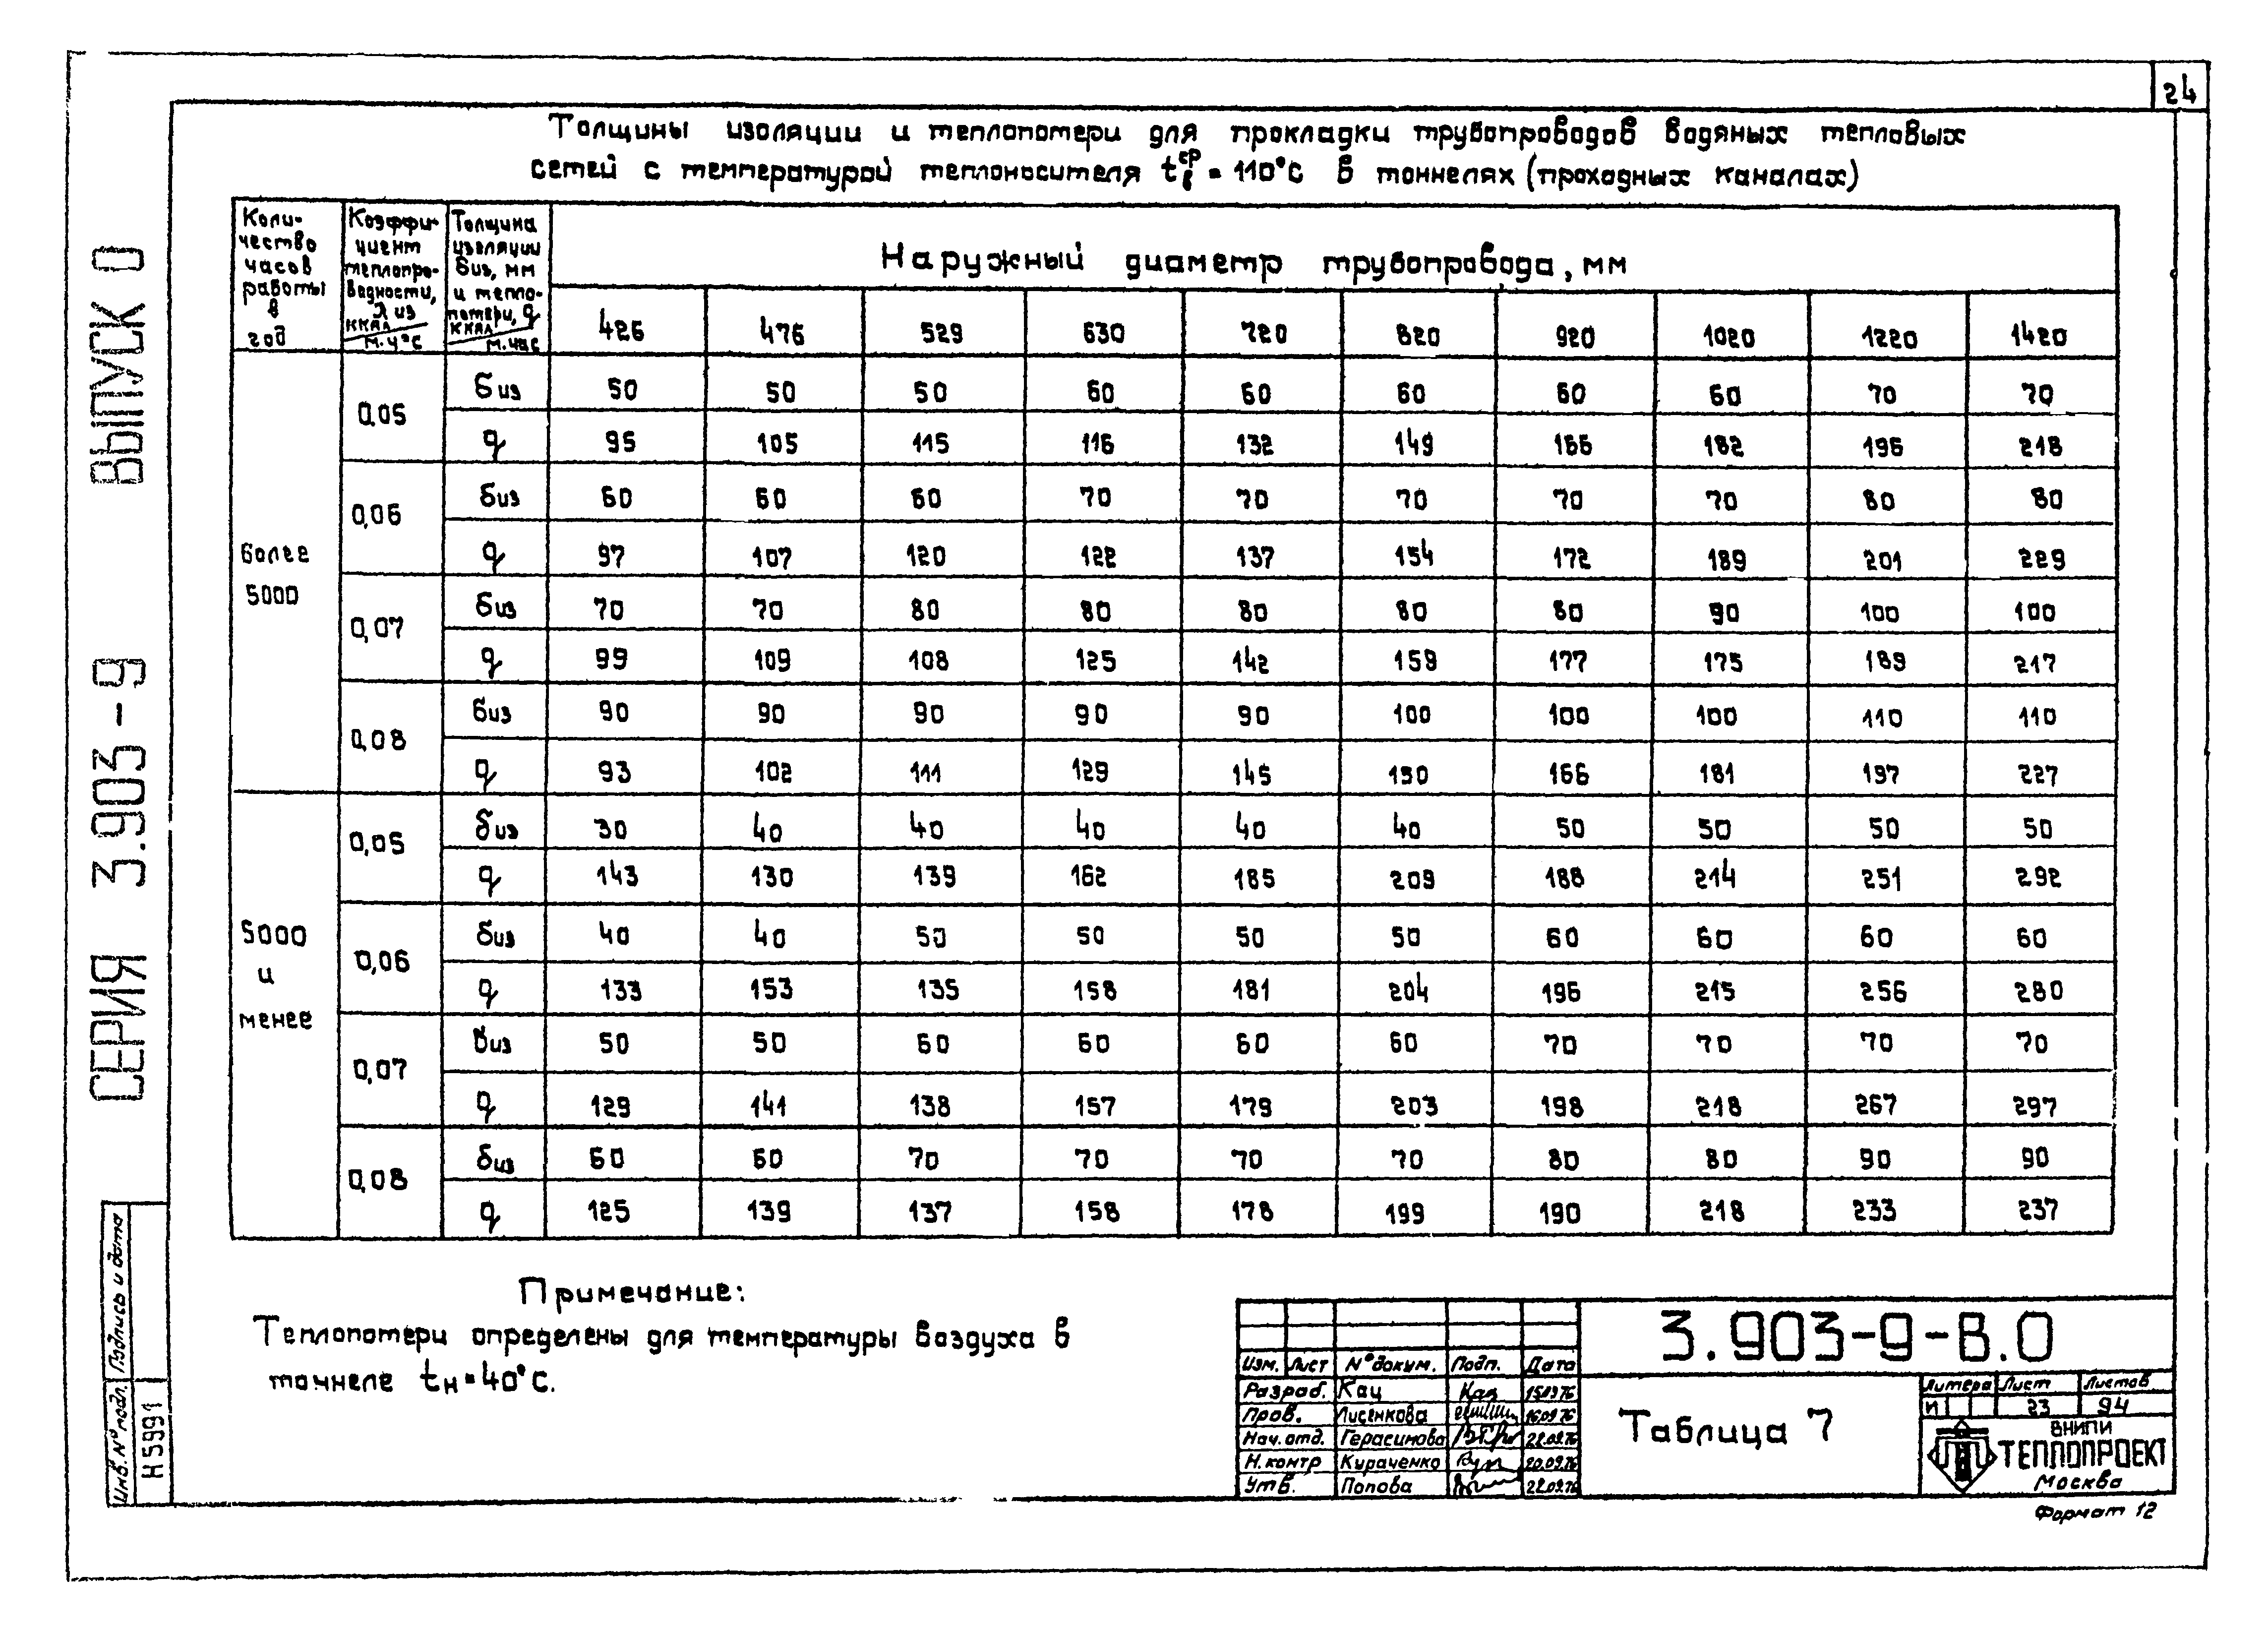 24
Толщины изоляции и теплопотери для прокладки трубопроводов водяных тепловых
сетей с температурой теплоносителя tв ср = 110°С в тоннелях (проходных каналах)
Количество часов работы в год | Коэффициент теплопроводности, λ из ккал/м.ч°С | Толщина изоляции δиз, мм и теплопотери, q ккал/м.час | Наружный диаметр трубопровода, мм
426 476 529 630 720 820 920 1020 1220 1420
более 5000
0,05 δиз 50 50 50 60 60 60 60 60 70 70
q 95 105 115 116 132 149 166 182 196 218
0,06 δиз 60 60 60 70 70 70 70 70 80 80
q 97 107 120 122 137 154 172 189 201 229
0,07 δиз 70 70 80 80 80 80 80 90 100 100
q 99 109 108 125 142 159 177 175 189 217
0,08 δиз 90 90 90 90 90 100 100 100 110 110
q 93 102 111 129 145 150 166 181 197 227
5000 и менее
0,05 δиз 30 40 40 40 40 40 50 50 50 50
q 143 130 139 162 185 209 188 214 251 292
0,06 δиз 40 40 50 50 50 50 60 60 60 60
q 133 153 135 158 181 204 196 215 256 280
0,07 δиз 50 50 60 60 60 60 70 70 70 70
q 129 141 138 157 179 203 198 218 267 297
0,08 δиз 60 60 70 70 70 70 80 80 90 90
q 125 139 137 158 178 199 190 218 233 237
Примечание:
Теплопотери определены для температуры воздуха в
тоннеле tн=40°С.
СЕРИЯ 3.903-9 ВЫПУСК 0
Инв. N° подл. Подпись и дата
Н5991
3.903-9-В.0
Изм. Лист N° докум. Подп. Дата
Разраб. Кац 15.09.76
Пров. Лисенкова 16.09.76
Нач. отд. Герасимова 22.09.76
Н. контр Кураченко 20.09.76
Утв. Попова 22.09.76
Таблица 7
Литера Лист Листов
И 23 94
ВНИПИ
ТЕПЛОПРОЕКТ
Москва
Формат 12